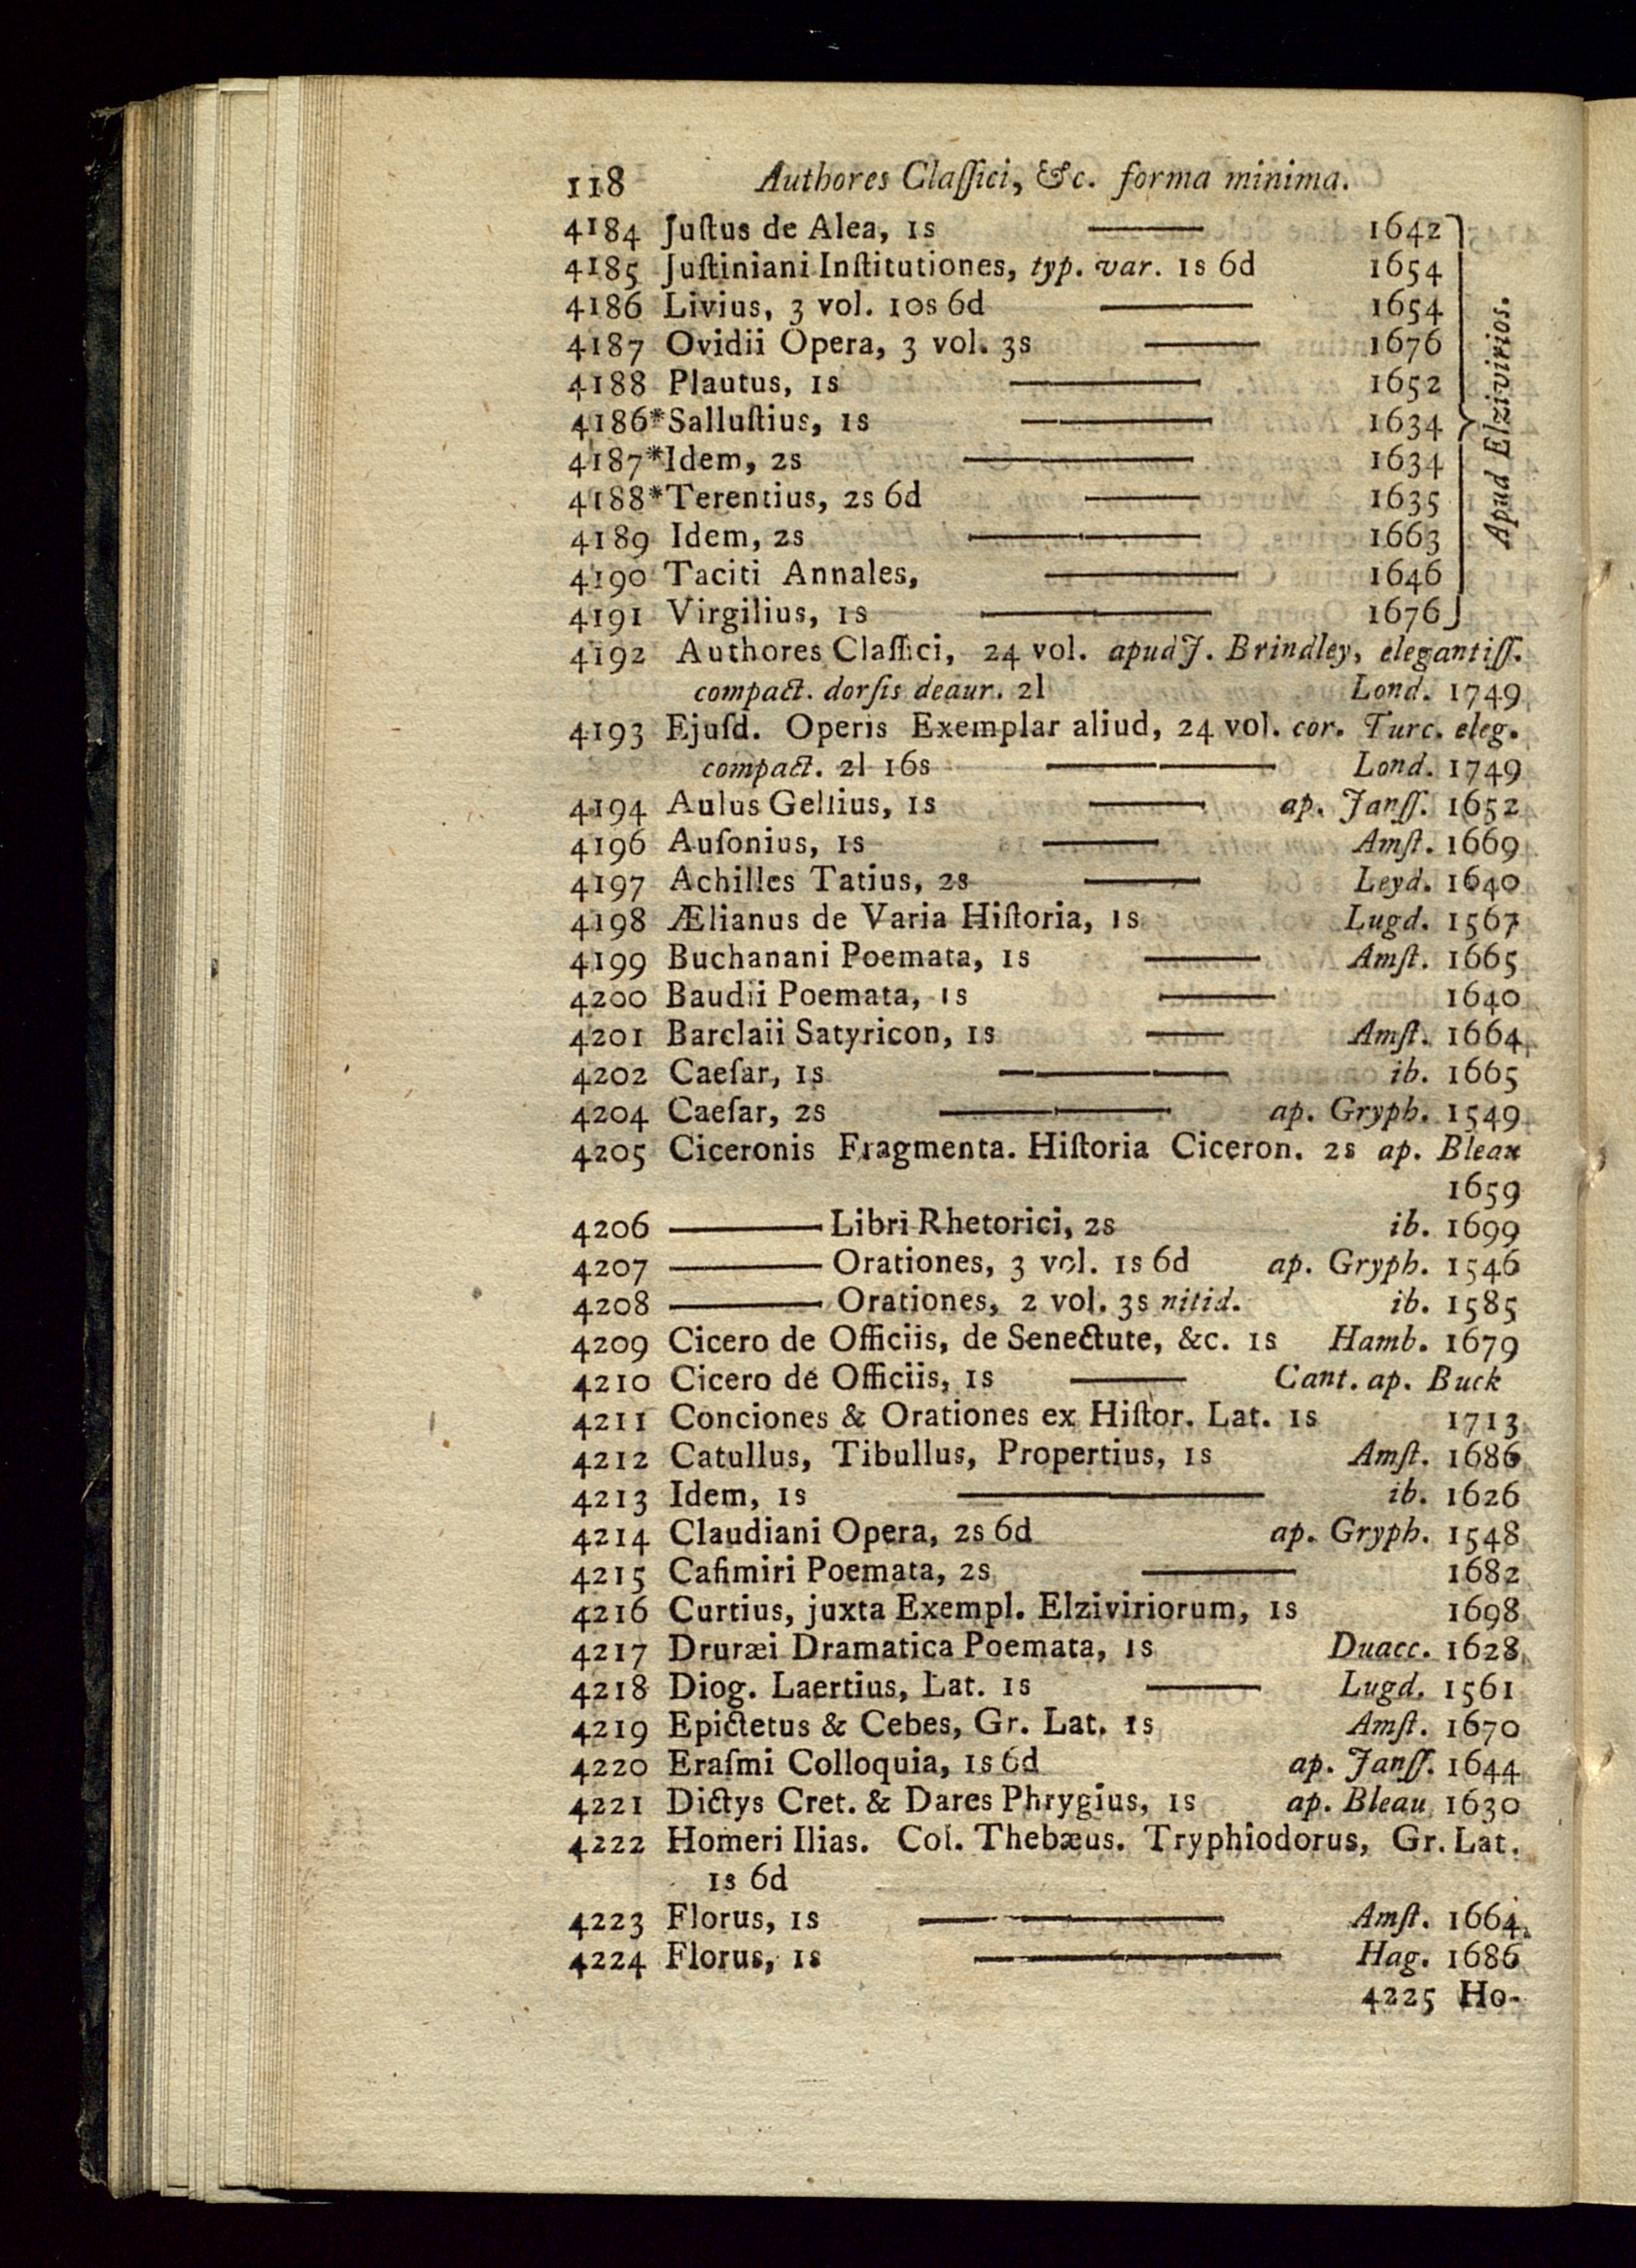 118 Authores Claſſici, &c. forma minima.
4184 Juſtus de Alea, 1s ——— 1642
4185 Juſtiniani Inſtitutiones, typ. var. 1s 6d 1654
4186 Livius, 3 vol. 10s 6d ——— 1654
4187 Ovidii Opera, 3 vol. 3s ——— 1676
4188 Plautus, 1s ——— 1652
4186*Salluſtius, 1s ——— 1634
4187*Idem, 2s ——— 1634
4188*Terentius, 2s 6d ——— 1635
4189 Idem, 2s ——— 1663
4190 Taciti Annales, ——— 1646
4191 Virgilius, 1s ——— 1676
Apud Elzivirios.
4192 Authores Claſſici, 24 vol. apud J. Brindley, elegantiſſ.
compact. dorſis deaur. 2l Lond. 1749
4193 Ejuſd. Operis Exemplar aliud, 24 vol. cor. Turc. eleg.
compact. 2l 16s ——— Lond. 1749
4194 Aulus Gellius, 1s ——— ap. Janſſ. 1652
4196 Auſonius, 1s ——— Amſt. 1669
4197 Achilles Tatius, 2s ——— Leyd. 1640
4198 Ælianus de Varia Hiſtoria, 1s Lugd. 1567
4199 Buchanani Poemata, 1s ——— Amſt. 1665
4200 Baudii Poemata, 1s ——— 1640
4201 Barclaii Satyricon, 1s ——— Amſt. 1664
4202 Caeſar, 1s ——— ib. 1665
4204 Caeſar, 2s ——— ap. Gryph. 1549
4205 Ciceronis Fragmenta. Hiſtoria Ciceron. 2s ap. Bleau
1659
4206 ——— Libri Rhetorici, 2s ib. 1699
4207 ——— Orationes, 3 vol. 1s 6d ap. Gryph. 1546
4208 ——— Orationes, 2 vol. 3s nitid. ib. 1585
4209 Cicero de Officiis, de Senectute, &c. 1s Hamb. 1679
4210 Cicero de Officiis, 1s ——— Cant. ap. Buck
4211 Conciones & Orationes ex Hiſtor. Lat. 1s 1713
4212 Catullus, Tibullus, Propertius, 1s Amſt. 1686
4213 Idem, 1s ——— ib. 1626
4214 Claudiani Opera, 2s 6d ap. Gryph. 1548
4215 Caſimiri Poemata, 2s ——— 1682
4216 Curtius, juxta Exempl. Elziviriorum, 1s 1698
4217 Druræi Dramatica Poemata, 1s Duacc. 1628
4218 Diog. Laertius, Lat. 1s ——— Lugd. 1561
4219 Epictetus & Cebes, Gr. Lat. 1s Amſt. 1670
4220 Eraſmi Colloquia, 1s 6d ap. Janſſ. 1644
4221 Dictys Cret. & Dares Phrygius, 1s ap. Bleau 1630
4222 Homeri Ilias. Col. Thebæus. Tryphiodorus, Gr. Lat.
1s 6d
4223 Florus, 1s ——— Amſt. 1664
4224 Florus, 1s ——— Hag. 1686
4225 Ho-